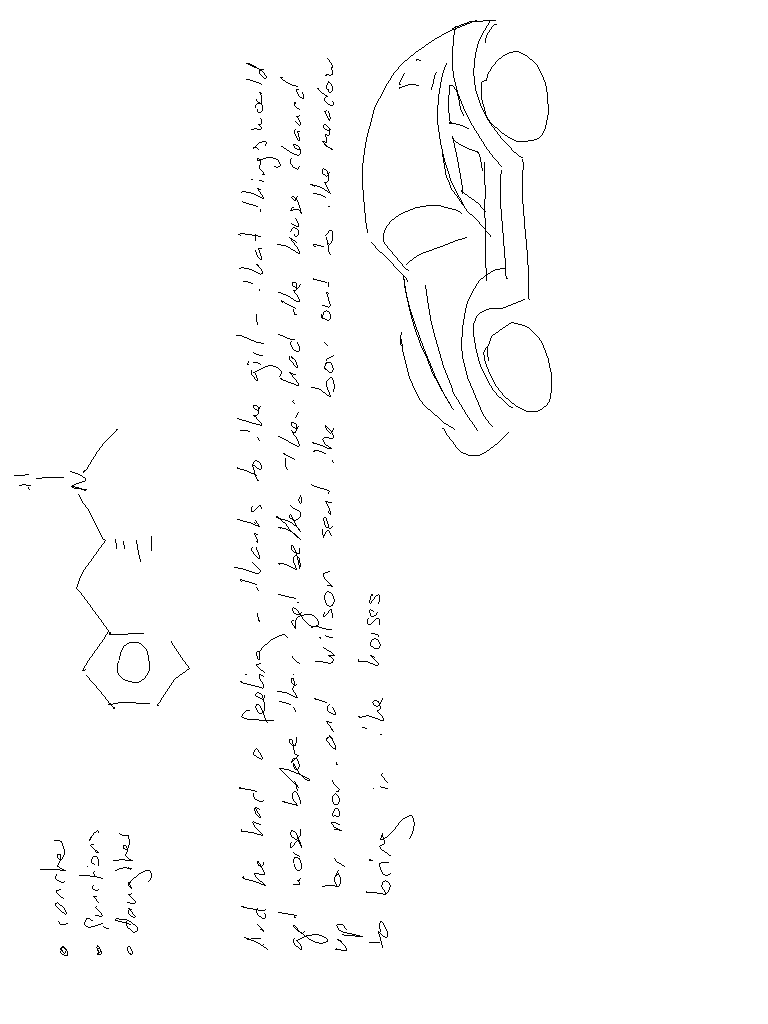 • rancher
• functions
• daughter
H
N
And he had a feeling - thanks to the girl - that things would
get worse before they got better. They had the house cleaned
up by noon, and Wilson sent the boy out to the meadow
to bring in the horses